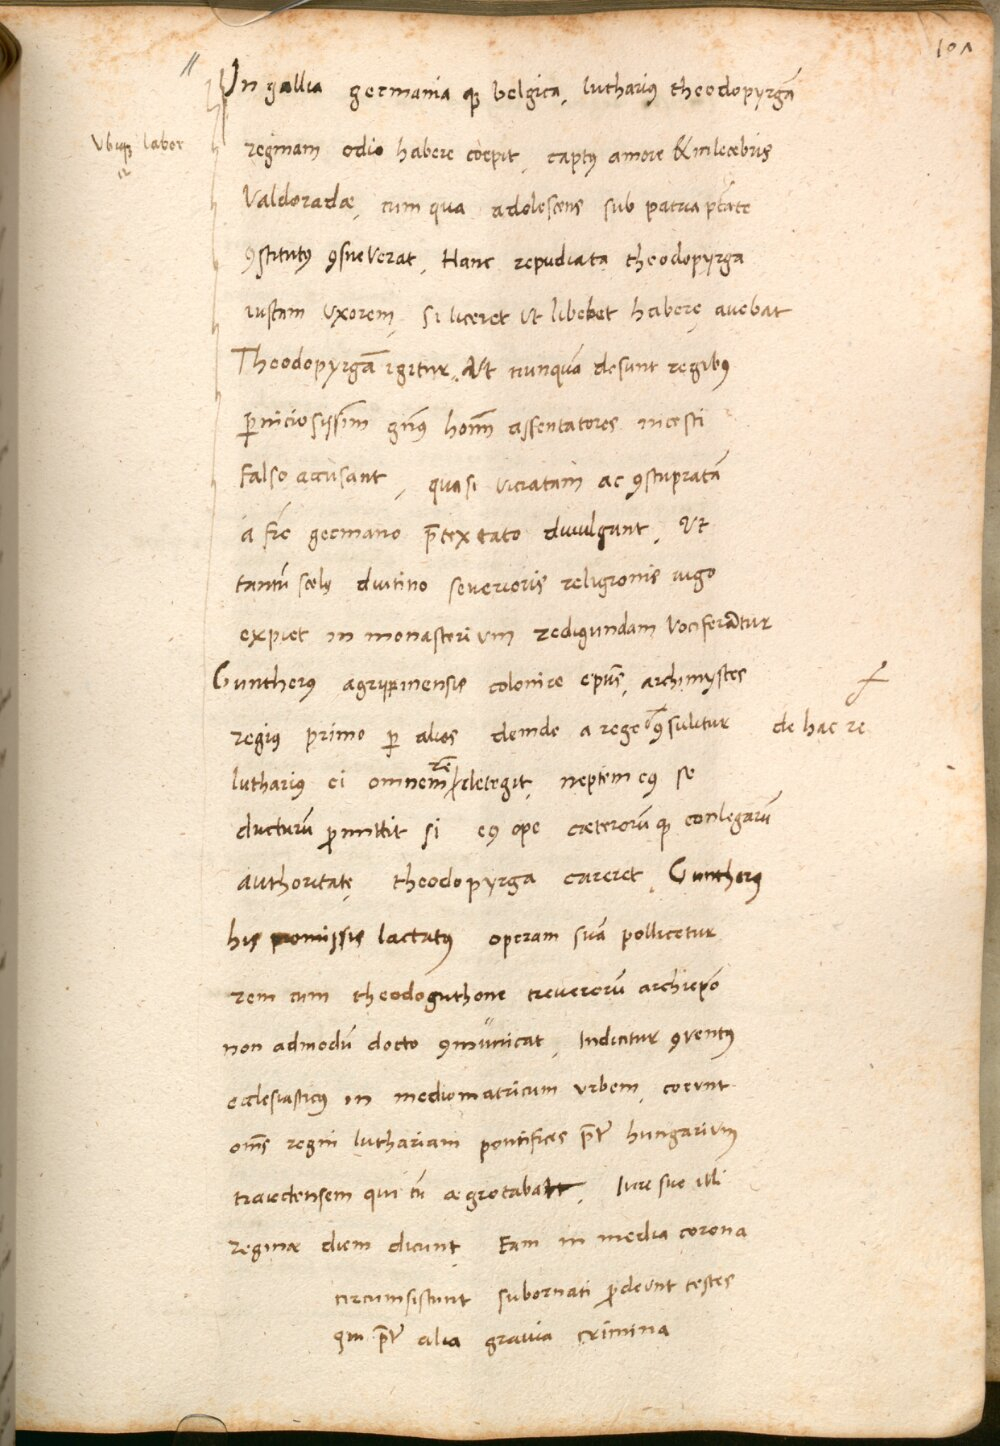 101
In gallia germania q; belgica, lutharius theodopyrgā
Ubiq; labor
reginam odio habere coepit, captus amore & inlecebris
Valdoradæ, cum qua adolescens sub patria ptāte
ꝯstitutus ꝯsueverat, Hanc repudiata theodopyrga
iustam uxorem, si liceret ut libebet habere avebat
Theodopyrgā igitur, Ut nunquā desunt regibus
ꝑniciosissim gn̄us homn̄ assentatores incesti
falso accusant, quasi viciatam ac ꝯstupratā
a fr̄e germano p̄textato divulgant, Ut
tantū scelus diutino severioris religionis iugo
expiet in monasterium redigundam vociferātur
Guntherus agrippinensis coloniæ ep̄us, archimystes
regius primo ꝑ alios deinde a rege ꝯsulitur de hac re
lutharius ei omnem rē detegit, neptem eius se
ducturū ꝓmittit si eius ope cæterorū q; conlegarū
authoritate theodopyrga careret, Guntherus
his promissis lactatus operam suā pollicetur
rem cum theodoguthone treverorū archiepō
non admodū docto ꝯmunicat, Indicitur ꝯventus
ecclesiasticus in mediomatricum urbem, coeunt
om̄s regni luthariani pontifices p̄ter hungarium
traiectensem qui tū ægrotabat, Iure suo illi
reginæ diem dicunt, Eam in media corona
circumsistunt subornati ꝓdeunt testes
qui p̄ter alia gravia crimina